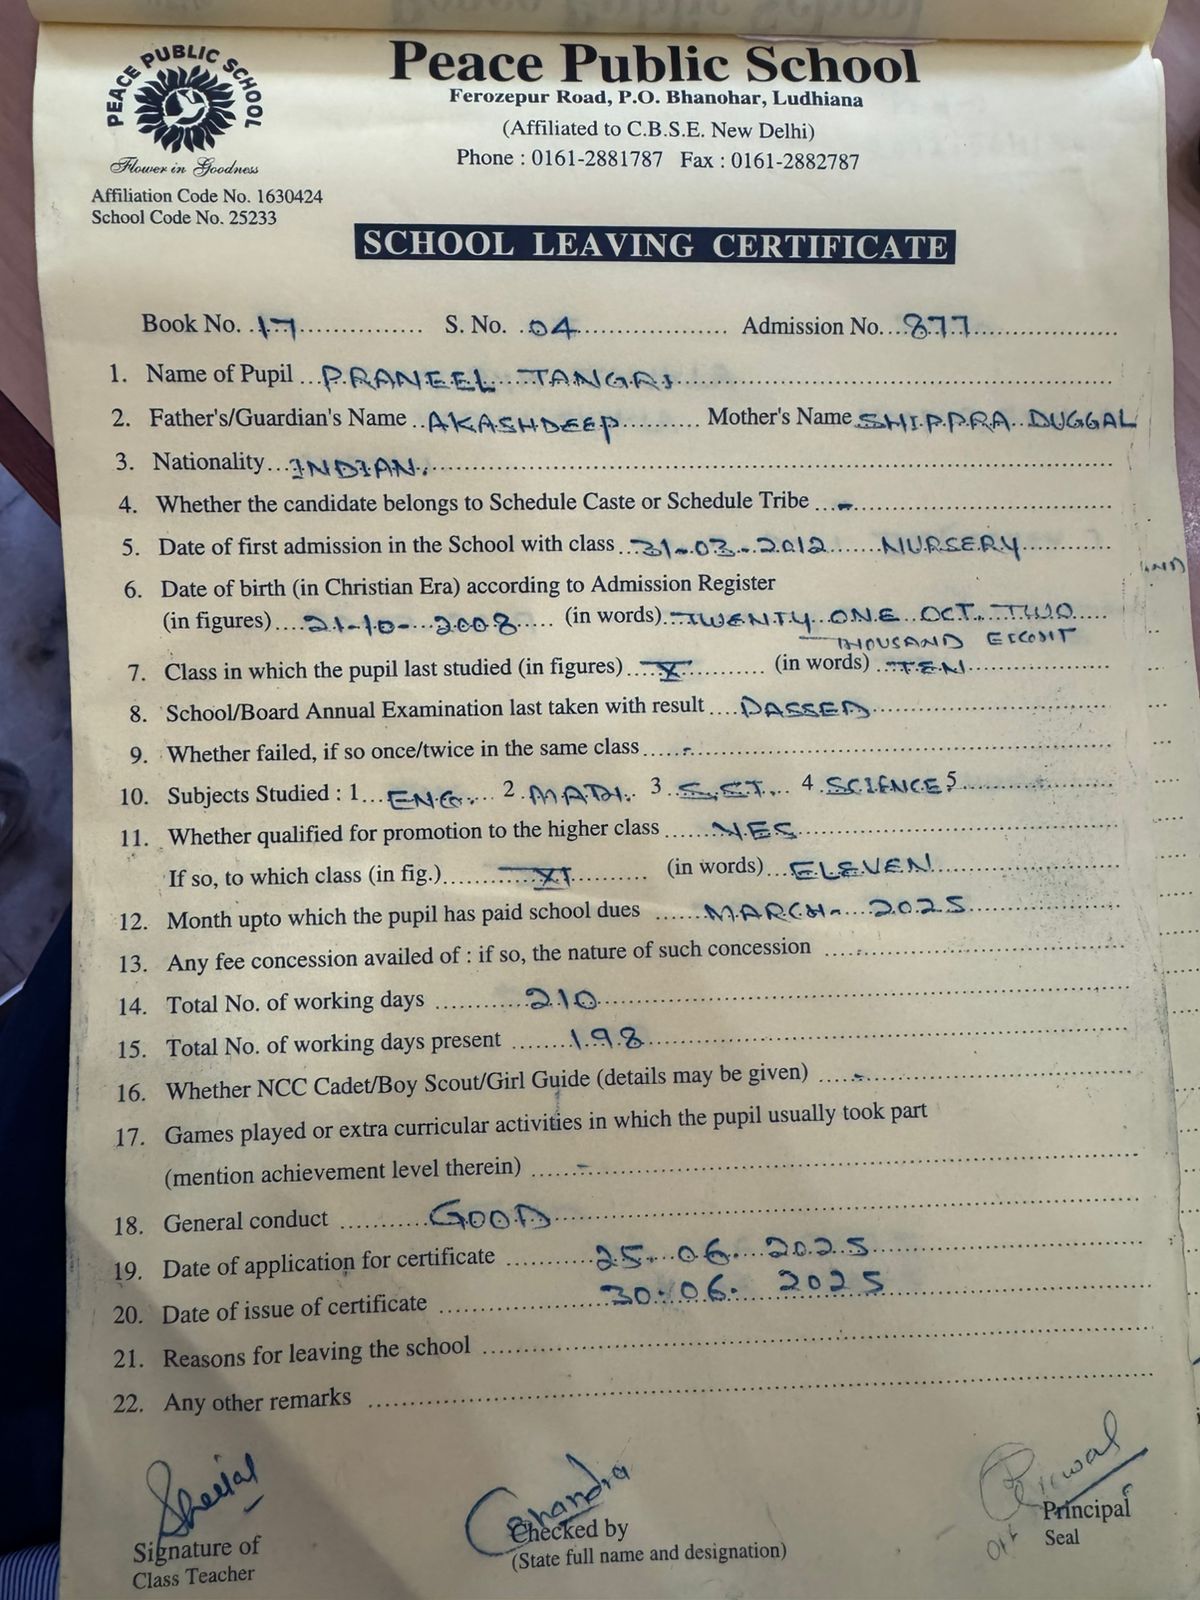 PEACE PUBLIC SCHOOL
Flower in Goodness
Affiliation Code No. 1630424
School Code No. 25233
Peace Public School
Ferozepur Road, P.O. Bhanohar, Ludhiana
(Affiliated to C.B.S.E. New Delhi)
Phone : 0161-2881787 Fax : 0161-2882787
SCHOOL LEAVING CERTIFICATE
Book No. 17 S. No. 04 Admission No. 877
1. Name of Pupil PRANEEL TANGRI
2. Father's/Guardian's Name AKASHDEEP Mother's Name SHIPPRA DUGGAL
3. Nationality INDIAN.
4. Whether the candidate belongs to Schedule Caste or Schedule Tribe -
5. Date of first admission in the School with class 31-03-2012 NURSERY
6. Date of birth (in Christian Era) according to Admission Register
(in figures) 21-10-2008 (in words) TWENTY ONE OCT. TWO
THOUSAND
7. Class in which the pupil last studied (in figures) X (in words) TEN
8. School/Board Annual Examination last taken with result PASSED
9. Whether failed, if so once/twice in the same class -
10. Subjects Studied : 1 ENG. 2 MATH. 3 S.ST. 4 SCIENCE 5
11. Whether qualified for promotion to the higher class YES
If so, to which class (in fig.) XI (in words) ELEVEN
12. Month upto which the pupil has paid school dues MARCH- 2025
13. Any fee concession availed of : if so, the nature of such concession -
14. Total No. of working days 210
15. Total No. of working days present 198
16. Whether NCC Cadet/Boy Scout/Girl Guide (details may be given) -
17. Games played or extra curricular activities in which the pupil usually took part
(mention achievement level therein) -
18. General conduct GOOD
19. Date of application for certificate 25.06.2025
20. Date of issue of certificate 30.06.2025
21. Reasons for leaving the school
22. Any other remarks
Chandra
Signature of
Class Teacher
Checked by
(State full name and designation)
Principal
Seal